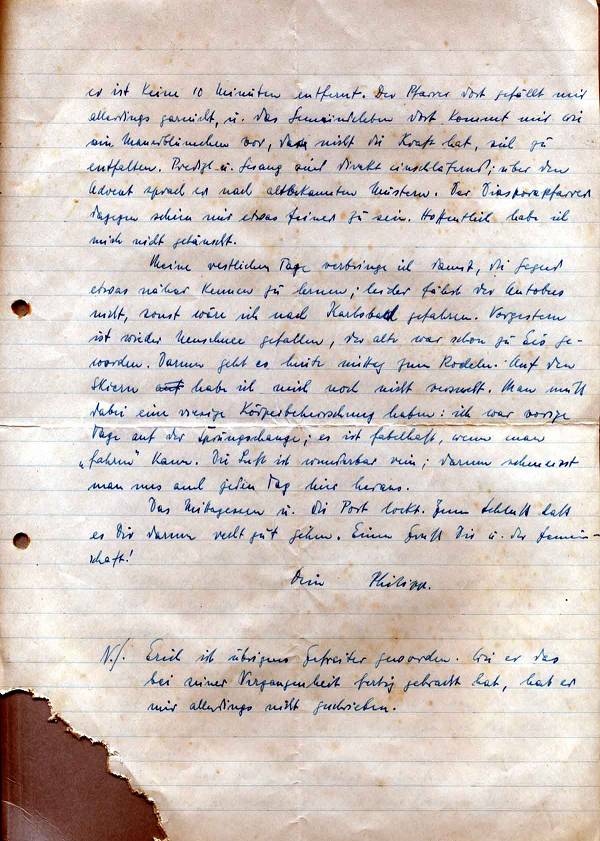 er ist keine 10 Minuten entfernt. Der Pfarrer dort gefällt mir
allerdings garnicht, u. das Gemeindeleben dort kommt mir wie
ein Mauerblümchen vor, das nicht die Kraft hat, sich zu
entfalten. Predigt u. Gesang sind direkt einschläfernd; über den
Advent sprach er nach altbekannten Mustern. Der Diasporapfarrer
dagegen schien mir etwas feiner zu sein. Hoffentlich habe ich
mich nicht getäuscht.
Meine restlichen Tage verbringe ich damit, die Gegend
etwas näher kennen zu lernen; leider fährt der Autobus
nicht, sonst wäre ich nach Karlsbad gefahren. Vorgestern
ist wieder Neuschnee gefallen, der alte war schon zu Eis ge-
worden. Darum geht es heute mittag zum Rodeln. Auf den
Skiern habe ich mich noch nicht versucht. Man muß
dabei eine riesige Körperbeherrschung haben: ich war vorige
Tage auf der Sprungschanze; es ist fabelhaft, wenn man
„fahrn" kann. Die Luft ist wunderbar rein; darum schmeisst
man uns auch jeden Tag hier heraus.
Das Mittagessen u. die Post lockt. Zum Schluß laß
es Dir darum recht gut gehen. Einen Gruß Dir u. der Gemein-
schaft!
Dein Philipp.
N.S. Erich ist übrigens Gefreiter geworden. Wie er das
bei seiner Vergangenheit fertig gebracht hat, hat er
mir allerdings nicht geschrieben.